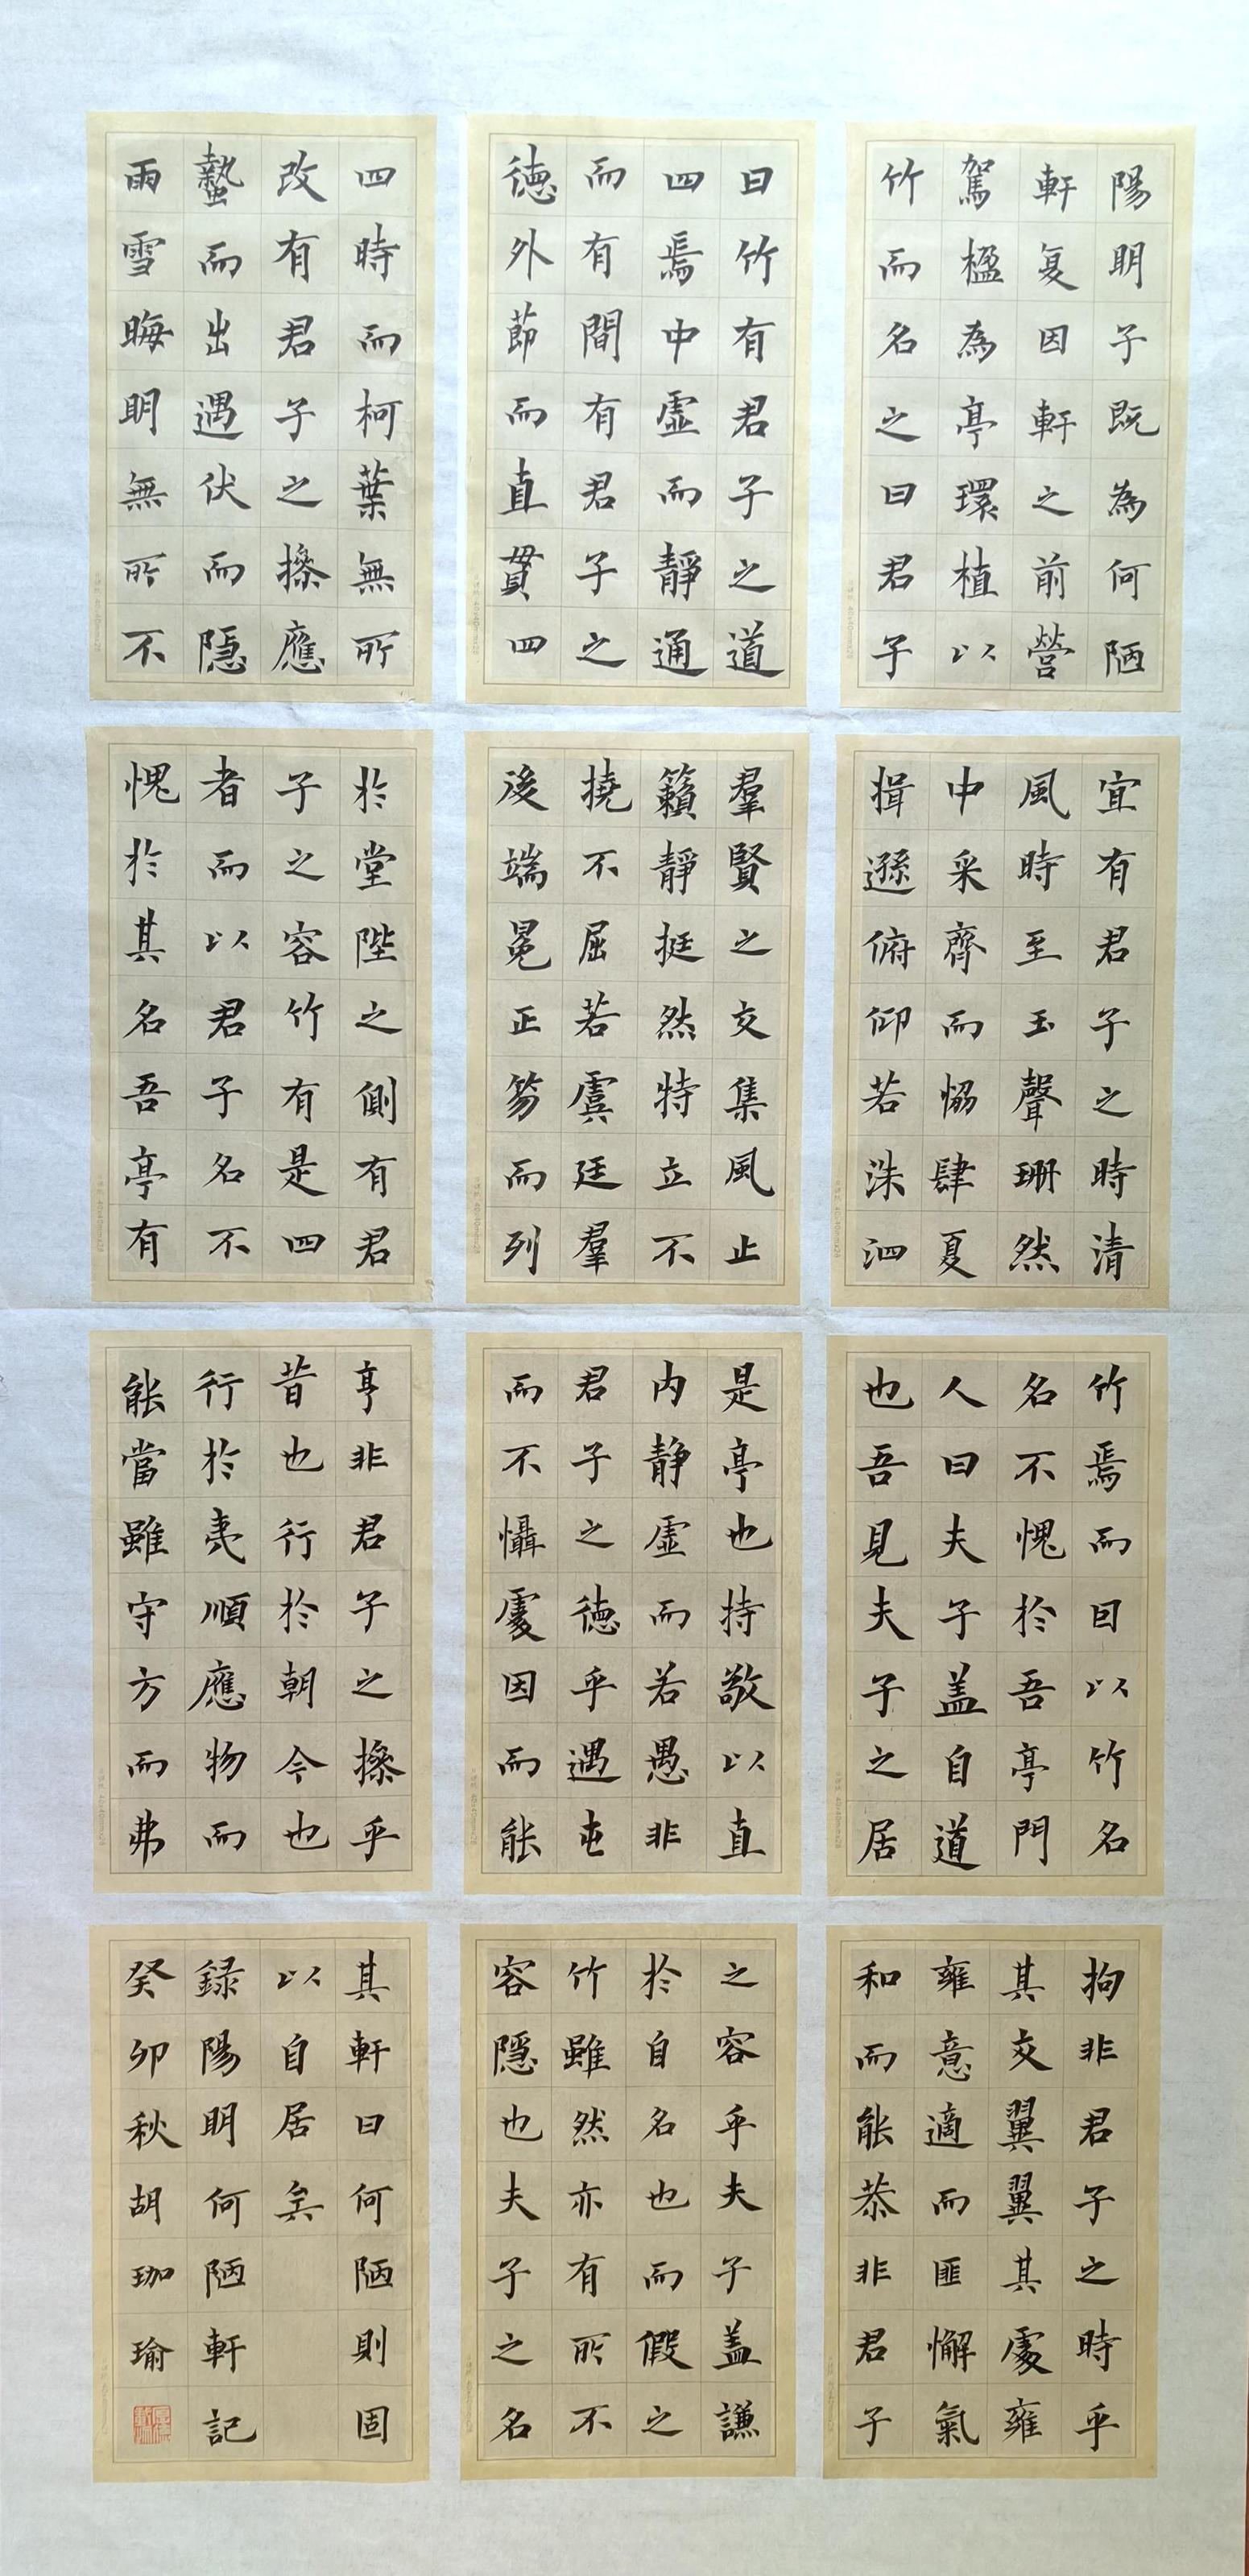 陽明子既為何陋
軒复因軒之前營
駕楹為亭環植以
竹而名之曰君子
曰竹有君子之道
四焉中虛而靜通
而有間有君子之
德外節而直貫四
四時而柯葉無所
改有君子之操應
蟄而出遇伏而隱
雨雪晦明無所不
宜有君子之時清
風時至玉聲珊然
中采齊而協肆夏
揖遜俯仰若洙泗
羣賢之交集風止
籟靜挺然特立不
撓不屈若虞廷羣
後端冕正笏而列
於堂陛之側有君
子之容竹有是四
者而以君子名不
愧於其名吾亭有
竹焉而曰以竹名
名不愧於吾亭門
人曰夫子盖自道
也吾見夫子之居
是亭也持敬以直
内静虛而若愚非
君子之德乎遇屯
而不懾處因而能
亨非君子之操乎
昔也行於朝今也
行於夷順應物而
能當雖守方而弗
拘非君子之時乎
其交翼翼其處雍
雍意適而匪懈氣
和而能恭非君子
之容乎夫子盖謙
於自名也而假之
竹雖然亦有所不
容隱也夫子之名
其軒曰何陋則固
以自居矣
錄陽明何陋軒記
癸卯秋胡珈瑜